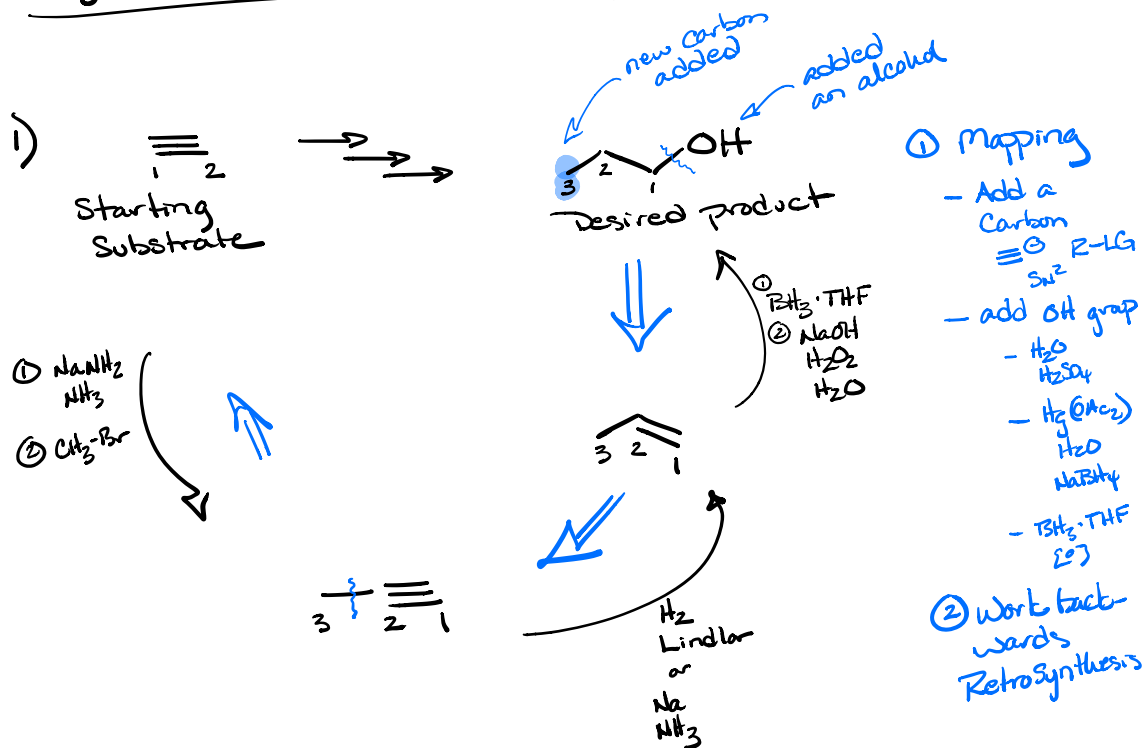 1)
1 2
Starting
Substrate
new carbon
added
added
an alcohol
OH
3 2 1
Desired product
① BH3·THF
② NaOH
H2O2
H2O
① NaNH2
NH3
② CH3-Br
3 2 1
3 2 1
H2
Lindlar
or
Na
NH3
① Mapping
- Add a
Carbon
⊖ R-LG
SN2
- add OH group
- H2O
H2SO4
- Hg(OAc2)
H2O
NaBH4
- BH3·THF
[O]
② Work back-
wards
RetroSynthesis